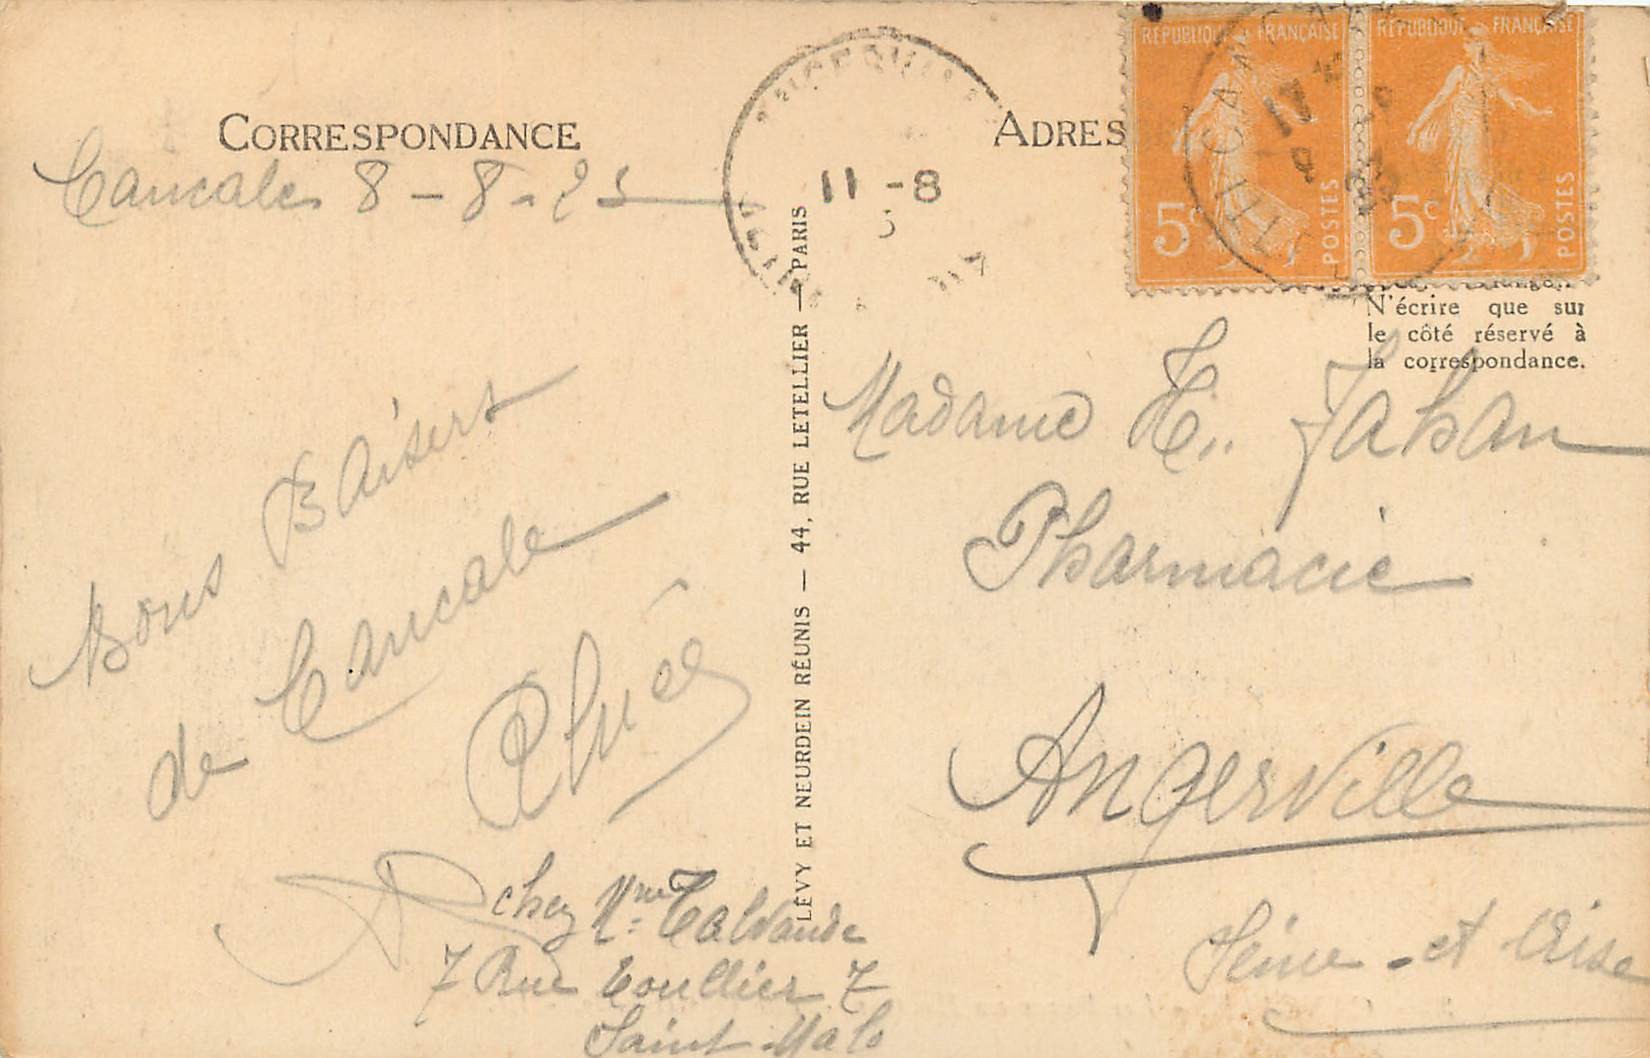 CORRESPONDANCE
Cancale 8 - 8 - 25
Bons Baisers
de Cancale
chez Mme Talvande
7 Rue Toullier 7
Saint-Malo
LÉVY ET NEURDEIN RÉUNIS — 44, RUE LETELLIER — PARIS
11 -8
ADRES
RÉPUBLIQUE FRANÇAISE
5c
POSTES
RÉPUBLIQUE FRANÇAISE
5c
POSTES
N'écrire que sur
le côté réservé à
la correspondance.
Madame Jahan
Pharmacie
Angerville
Seine-et Oise